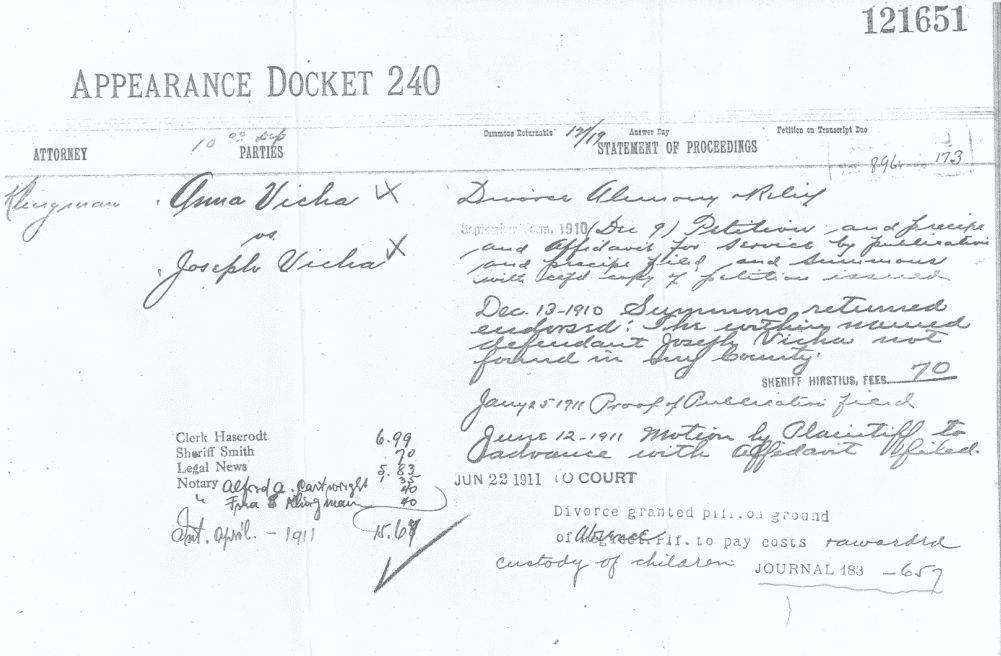 121651
APPEARANCE DOCKET 240
10 00 dep
Summons Returnable 12/19 Answer Day Petition on Transcript Due
ATTORNEY PARTIES STATEMENT OF PROCEEDINGS
896 173
Klingman Anna Vicha X Divorce Alimony & Relief
vs
Joseph Vicha X
September Term, 1910 (Dec 9) Petition and precipe
and affidavit for service by publication
and precipe filed and summons
with copy of petition issued
Dec. 13-1910 Summons returned
endorsed: The within named
defendant Joseph Vicha not
found in my County.
SHERIFF HIRSTIUS, FEES 70
Jany 25 1911 Proof of Publication filed
June 12-1911 Motion by Plaintiff to
advance with affidavit filed.
JUN 22 1911 TO COURT
Divorce granted pltf. on ground
of Absence Pltf. to pay costs & awarded
custody of children JOURNAL 183 - 657
Clerk Haserodt 6.99
Sheriff Smith 70
Legal News 5.83
Notary Alfred A. Cartwright 40
" Klingman 40
Int. April. - 1911 15.67